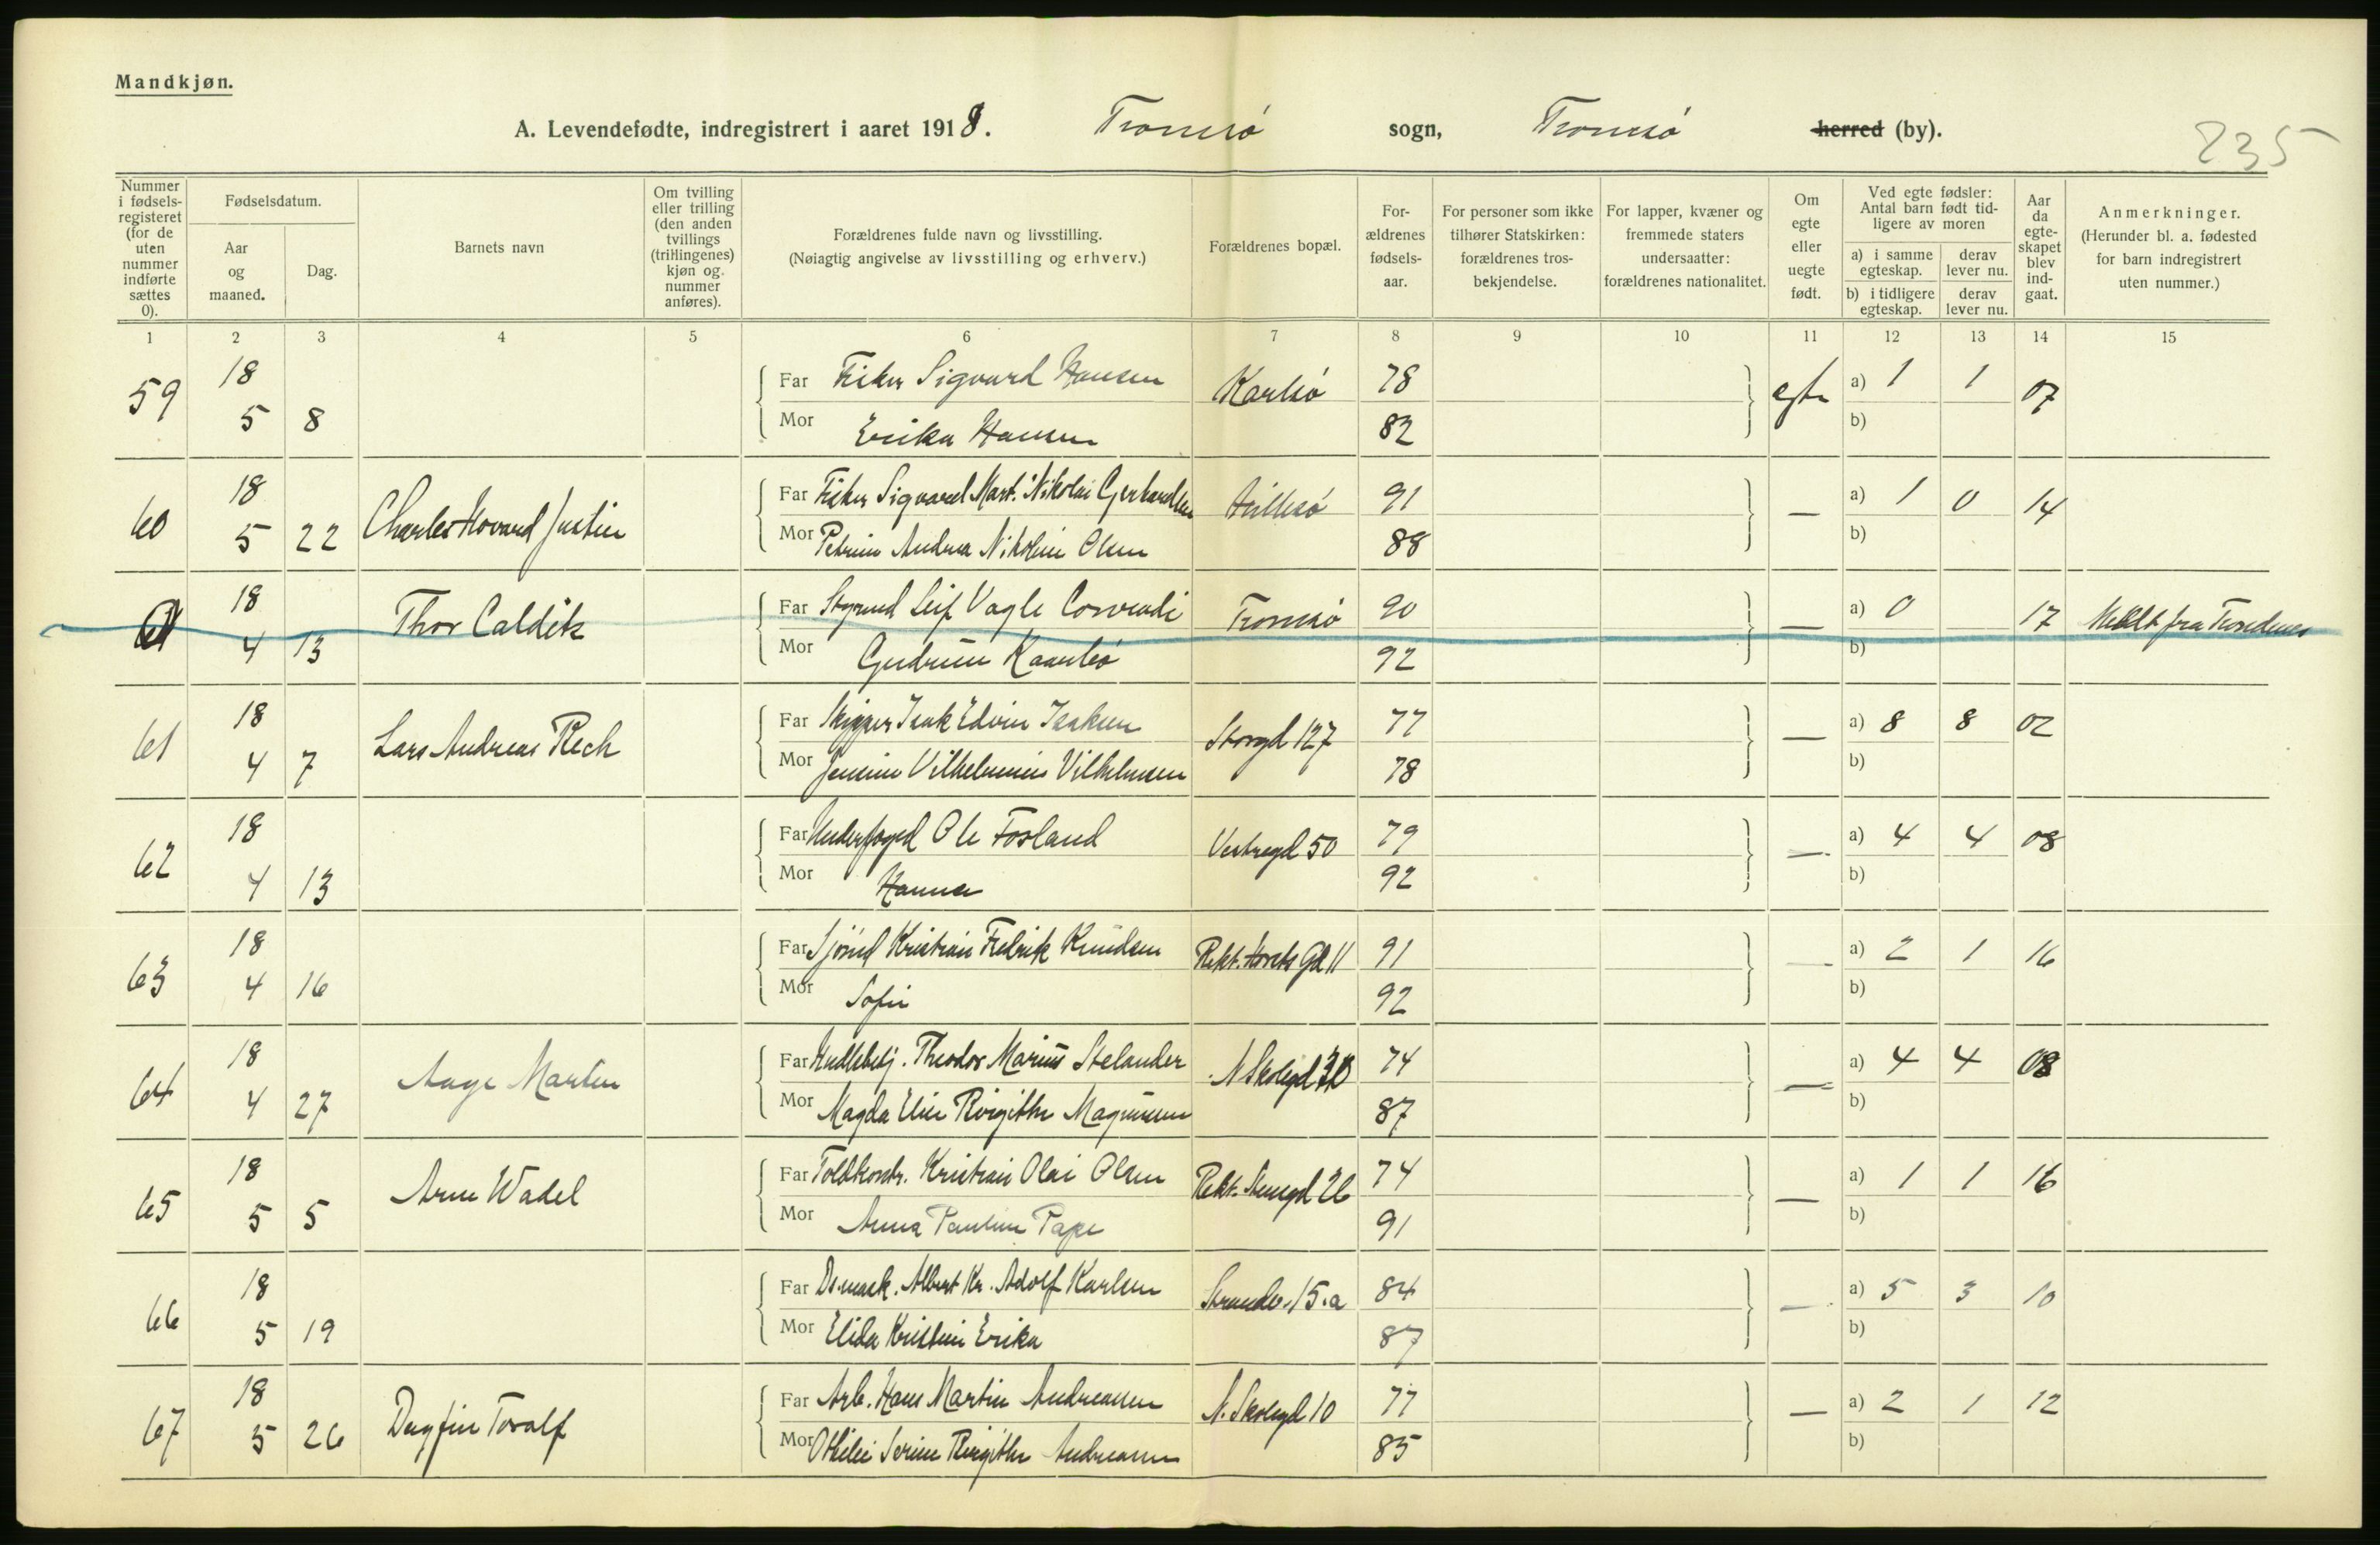 Mandkjøn.
A. Levendefødte, indregistrert i aaret 1918. Tromsø sogn, Tromsø herred (by).
235
Nummer i fødselsregisteret (for de uten nummer indførte sættes 0).
Fødselsdatum.
Aar og maaned.
Dag.
Barnets navn
Om tvilling eller trilling (den anden tvillings (trillingenes) kjøn og nummer anføres).
Forældrenes fulde navn og livsstilling.
(Nøiagtig angivelse av livsstilling og erhverv.)
Forældrenes bopæl.
Forældrenes fødselsaar.
For personer som ikke tilhører Statskirken: forældrenes trosbekjendelse.
For lapper, kvæner og fremmede staters undersaatter: forældrenes nationalitet.
Om egte eller uegte født.
Ved egte fødsler: Antal barn født tidligere av moren
a) i samme egteskap. derav lever nu.
b) i tidligere egteskap. derav lever nu.
Aar da egteskapet blev indgaat.
Anmerkninger.
(Herunder bl. a. fødested for barn indregistrert uten nummer.)
1 2 3 4 5 6 7 8 9 10 11 12 13 14 15
59 18 5 8 Far Fisker Sigvard Hansen Karlsø 78 egte a) 1 1 07
Mor Erika Hansen 82 b)
60 18 5 22 Charles Hovard Justin Far Fisker Sigvard Mart. Nikolai Gerhardsen Hillesø 91 — a) 1 0 14
Mor Petrine Andrea Nikoline Olsen 88 b)
18 4 13 Thor Caldek Far Styrmd Leif Vagle Conradi Tromsø 90 — a) 0 17 Meldt fra Trondenes
Mor Gudrun Kaarbø 92 b)
61 18 4 7 Lars Andreas Rech Far Skipper Isak Edvin Isaksen Storgd 127 77 — a) 8 8 02
Mor Jensine Vilhelmine Vilhelmsen 78 b)
62 18 4 13 Far Underfoged Ole Fosland Vestregd 50 79 — a) 4 4 08
Mor Hanna 92 b)
63 18 4 16 Far Sjømd Kristian Fredrik Knudsen Rekt. Horsts Gd 11 91 — a) 2 1 16
Mor Sofie 92 b)
64 18 4 27 Aage Martin Far Handlebetj. Theodor Marius Stelander N Skolegd 74 — a) 4 4 08
Mor Magda Elise Birgithe Magnussen 87 b)
65 18 5 5 Arne Wadel Far Toldkontr. Kristian Olai Olsen Rekt. Stengd 26 74 — a) 1 1 16
Mor Anna Pauline Pape 91 b)
66 18 5 19 Far Ds.mask. Albert Kr. Adolf Karlsen Strandv. 15.a 84 — a) 5 3 10
Mor Elida Kristine Erika 87 b)
67 18 5 26 Dagfin Toralf Far Arb. Hans Martin Andreassen N. Skolegd 10 77 — a) 2 1 12
Mor Othilie Serine Birgithe Andreassen 85 b)